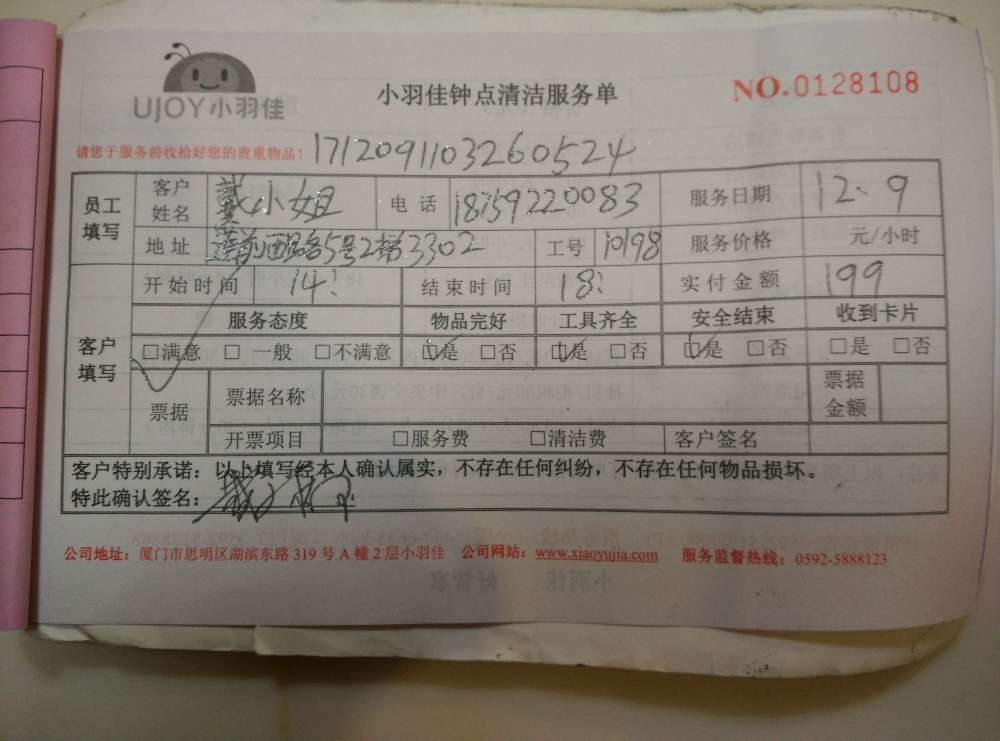 UJOY小羽佳
小羽佳钟点清洁服务单
NO.0128108
请您于服务前收拾好您的贵重物品！ 1712091103260524
员工填写 客户姓名 戴小姐 电话 18759220083 服务日期 12.9
地址 莲前西路5号2梯2302 工号 10198 服务价格 元/小时
客户填写 开始时间 14: 结束时间 18: 实付金额 199
服务态度 物品完好 工具齐全 安全结束 收到卡片
□满意 □一般 □不满意 ☑是 □否 ☑是 □否 ☑是 □否 □是 □否
票据 票据名称 票据金额
开票项目 □服务费 □清洁费 客户签名
客户特别承诺：以上填写经本人确认属实，不存在任何纠纷，不存在任何物品损坏。
特此确认签名：
公司地址：厦门市思明区湖滨东路 319 号 A 幢 2 层小羽佳 公司网站：www.xiaoyujia.com 服务监督热线：0592-5888123